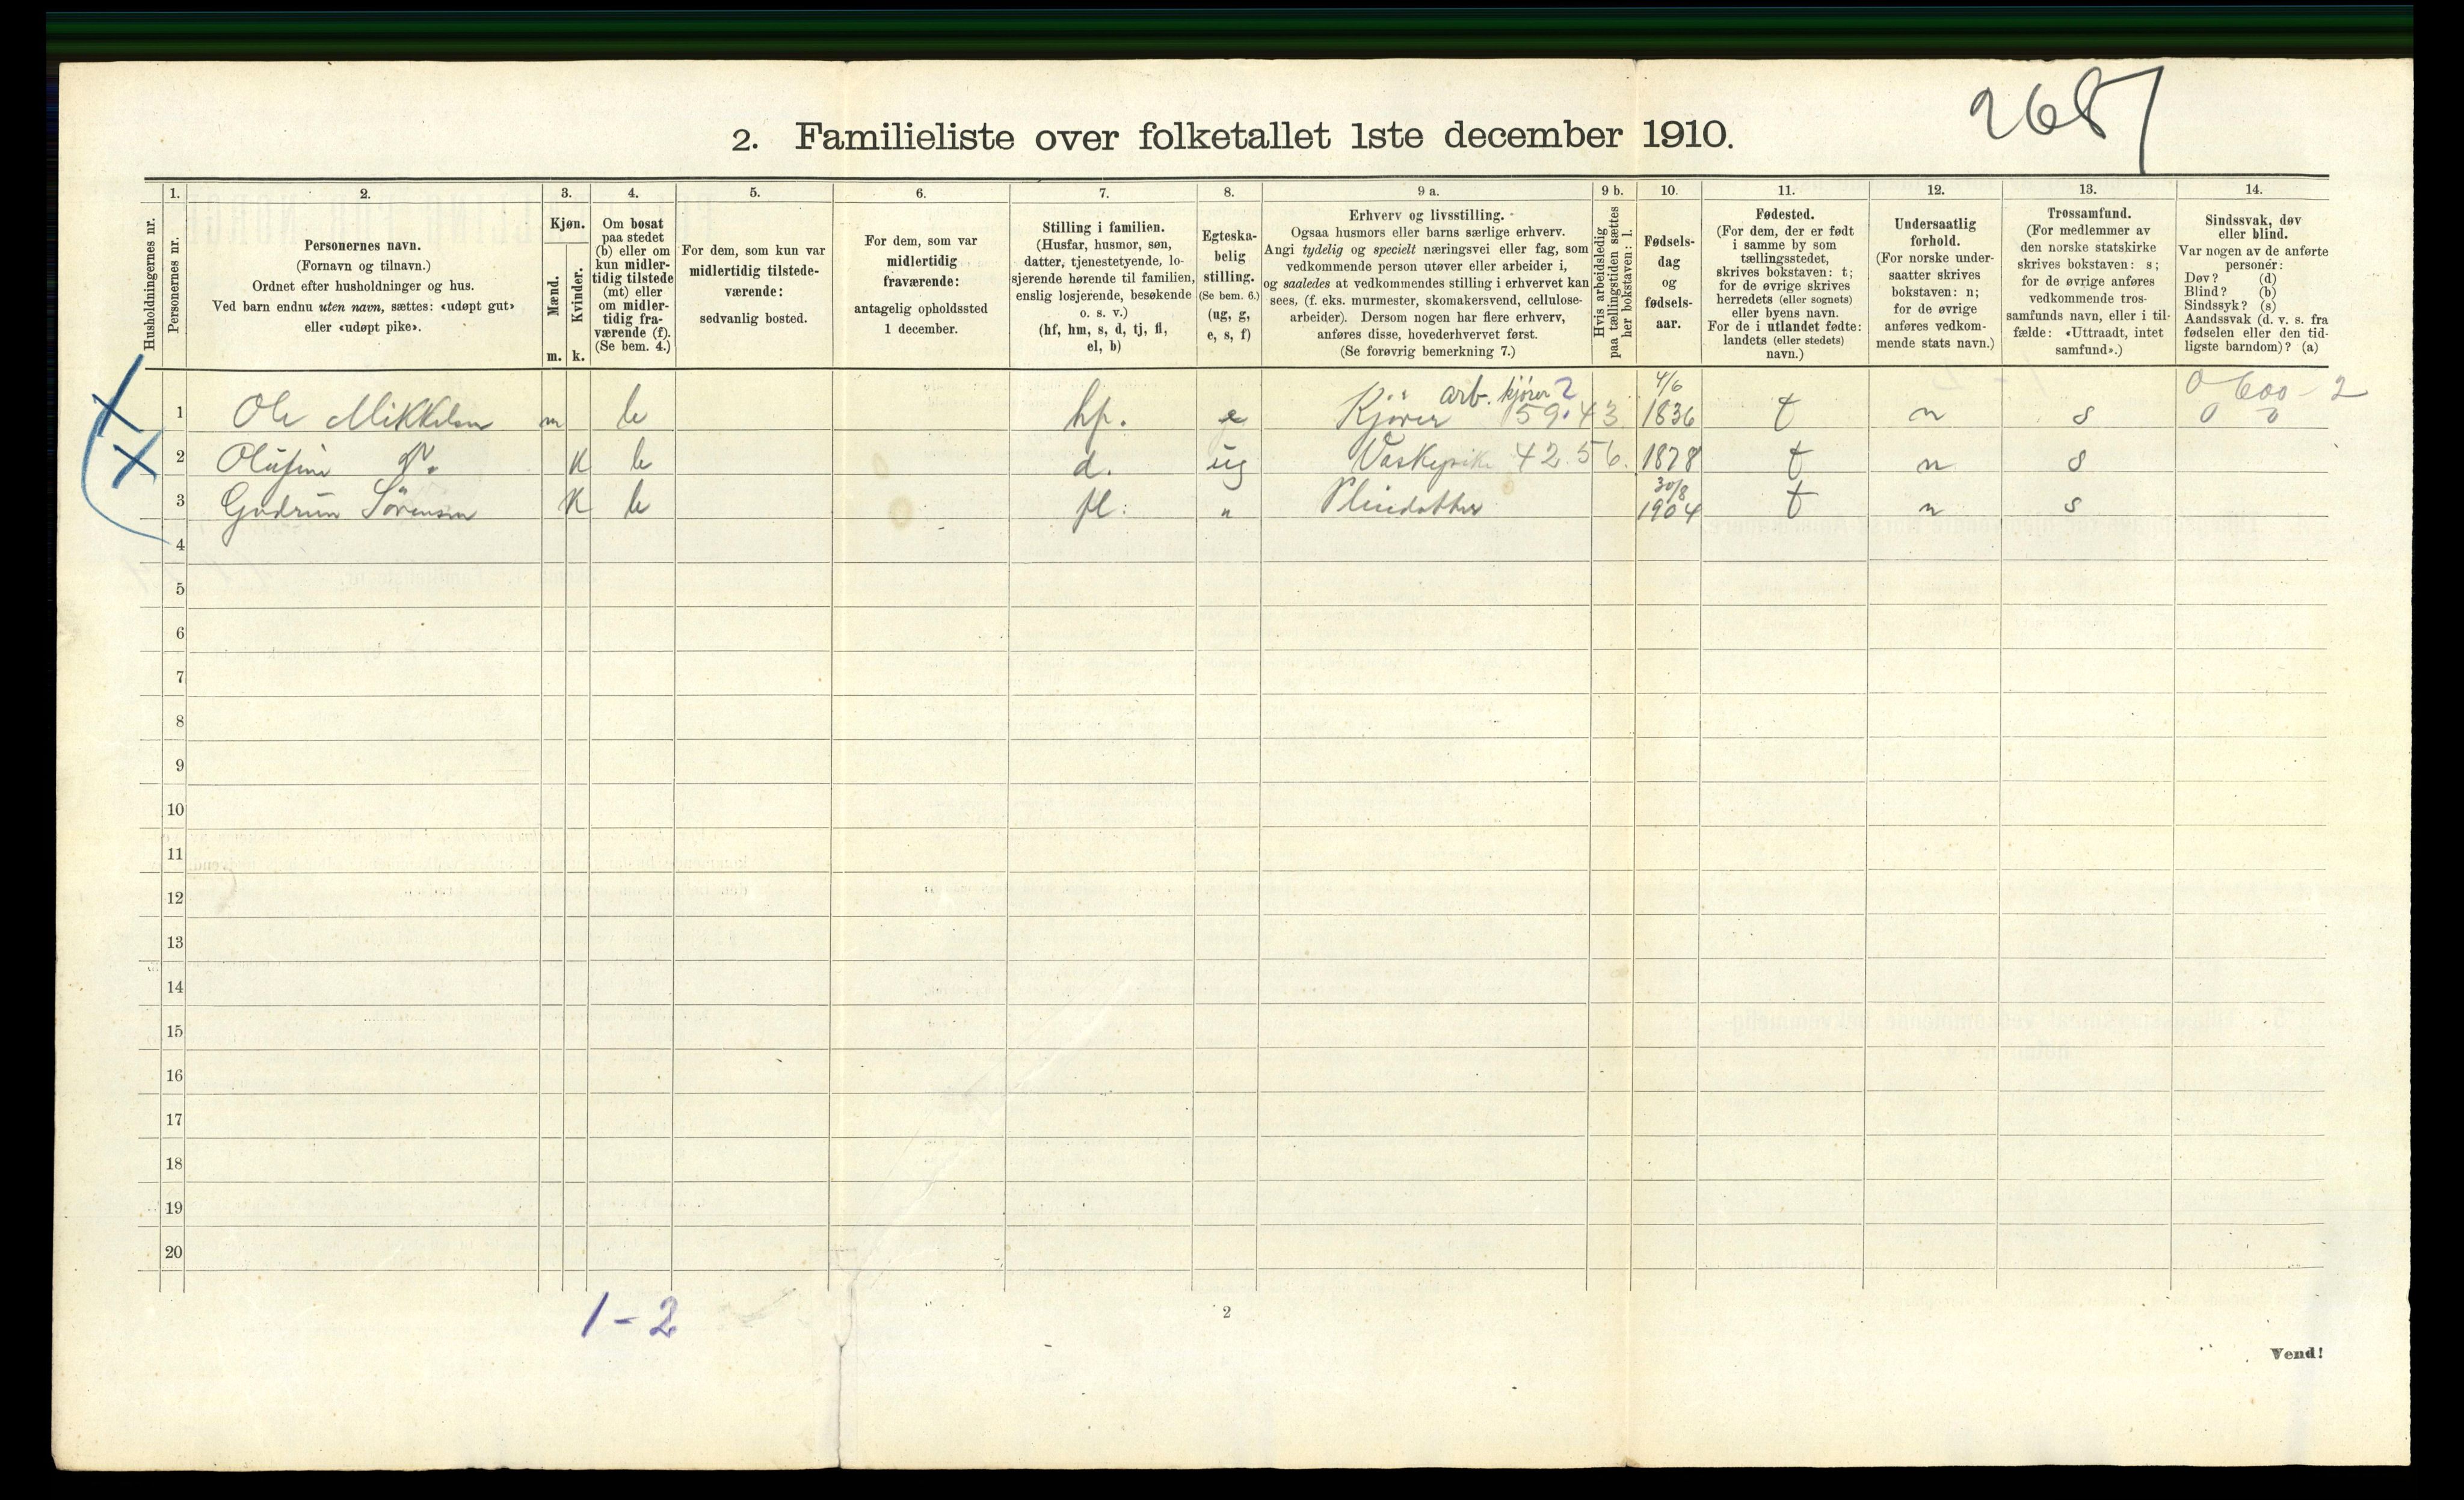 2687
2. Familieliste over folketallet 1ste december 1910.
Husholdningernes nr.
1.
Personernes nr.
2.
Personernes navn.
(Fornavn og tilnavn.)
Ordnet efter husholdninger og hus.
Ved barn endnu uten navn, sættes: «udøpt gut»
eller «udøpt pike».
3.
Kjøn.
Mænd.
Kvinder.
m. k.
4.
Om bosat
paa stedet
(b) eller om
kun midler-
tidig tilstede
(mt) eller
om midler-
tidig fra-
værende (f).
(Se bem. 4.)
5.
For dem, som kun var
midlertidig tilstede-
værende:
sedvanlig bosted.
6.
For dem, som var
midlertidig
fraværende:
antagelig opholdssted
1 december.
7.
Stilling i familien.
(Husfar, husmor, søn,
datter, tjenestetyende, lo-
sjerende hørende til familien,
enslig losjerende, besøkende
o. s. v.)
(hf, hm, s, d, tj, fl,
el, b)
8.
Egteska-
belig
stilling.
(Se bem. 6.)
(ug, g,
e, s, f)
9 a.
Erhverv og livsstilling.
Ogsaa husmors eller barns særlige erhverv.
Angi tydelig og specielt næringsvei eller fag, som
vedkommende person utøver eller arbeider i,
og saaledes at vedkommendes stilling i erhvervet kan
sees, (f. eks. murmester, skomakersvend, cellulose-
arbeider). Dersom nogen har flere erhverv,
anføres disse, hovederhvervet først.
(Se forøvrig bemerkning 7.)
9 b.
Hvis arbeidsledig
paa tællingstiden sættes
her bokstaven: l.
10.
Fødsels-
dag
og
fødsels-
aar.
11.
Fødested.
(For dem, der er født
i samme by som
tællingsstedet,
skrives bokstaven: t;
for de øvrige skrives
herredets (eller sognets)
eller byens navn.
For de i utlandet fødte:
landets (eller stedets)
navn.)
12.
Undersaatlig
forhold.
(For norske under-
saatter skrives
bokstaven: n;
for de øvrige
anføres vedkom-
mende stats navn.)
13.
Trossamfund.
(For medlemmer av
den norske statskirke
skrives bokstaven: s;
for de øvrige anføres
vedkommende tros-
samfunds navn, eller i til-
fælde: «Uttraadt, intet
samfund».)
14.
Sindssvak, døv
eller blind.
Var nogen av de anførte
personer:
Døv? (d)
Blind? (b)
Sindssyk? (s)
Aandssvak (d. v. s. fra
fødselen eller den tid-
ligste barndom)? (a)
arb. kjører ? 4/6 0 600 - 2
1 Ole Mikkelsen m b hf. e Kjører 59.43 1836 t n s 0 0
2 Olufine K b d. ug Vaskepike 42.56. 1878 t n s
30/8
3 Gudrun Sørensen K b fl: " Pleiedatter 1904 t n s
4
5
6
7
8
9
10
11
12
13
14
15
16
17
18
19
20
1-2
2
Vend!